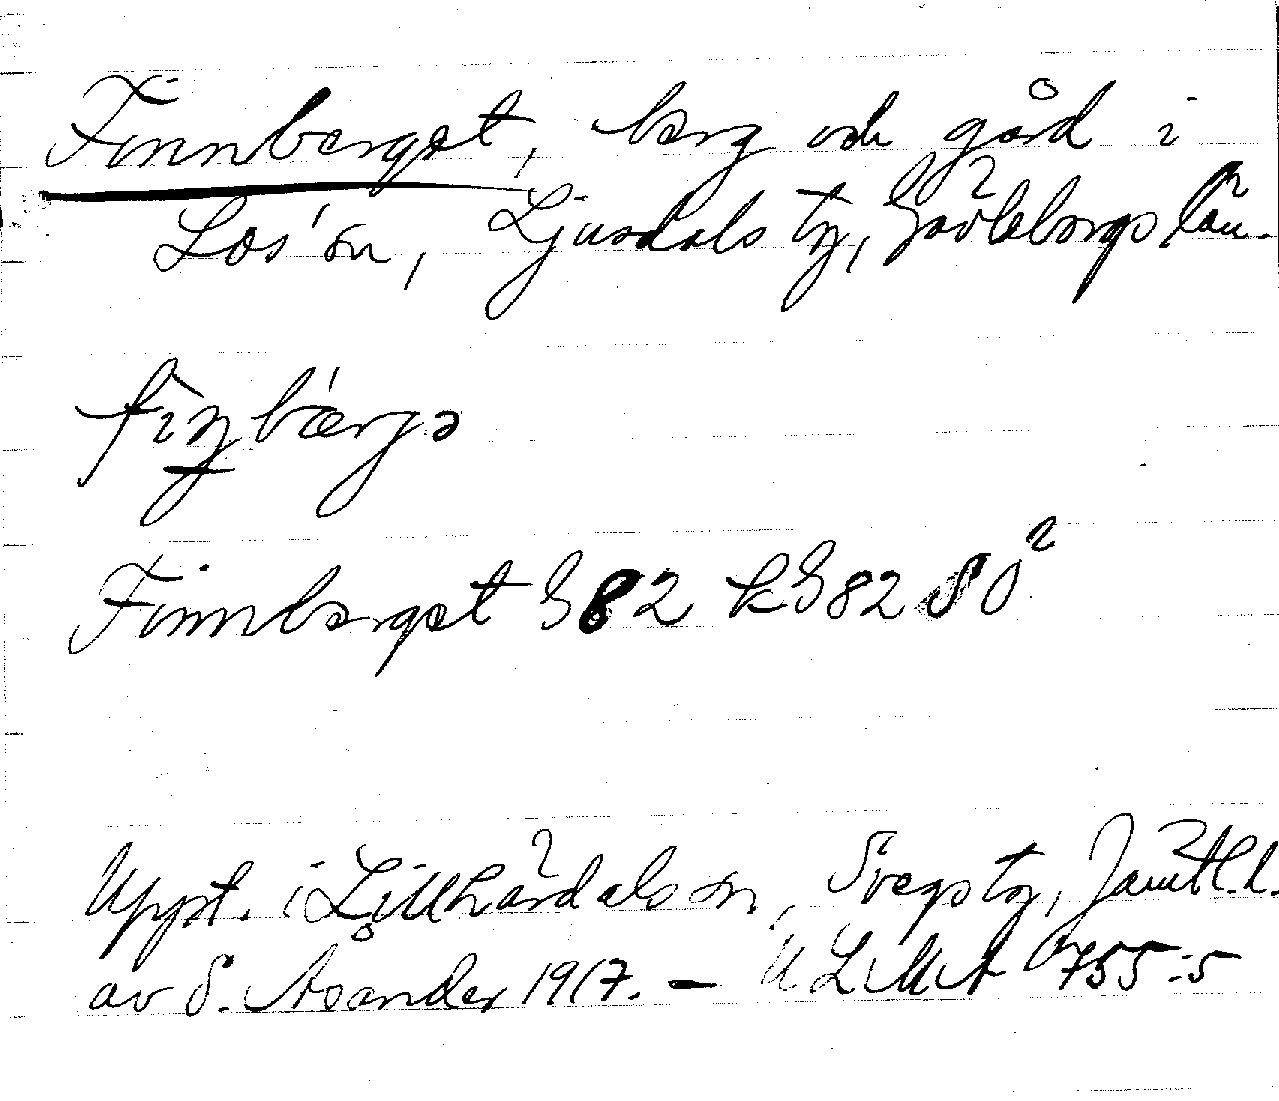 Finnberget, berg och gård i
Los' sn, Ljusdals tg, Gävleborgs län.
Finnberget G82 kG82 80²
Uppt. i Lillhärdals sn, Svegs tg, Jämtl. l.
av S. Åsander 1917. – ULMA 755:5